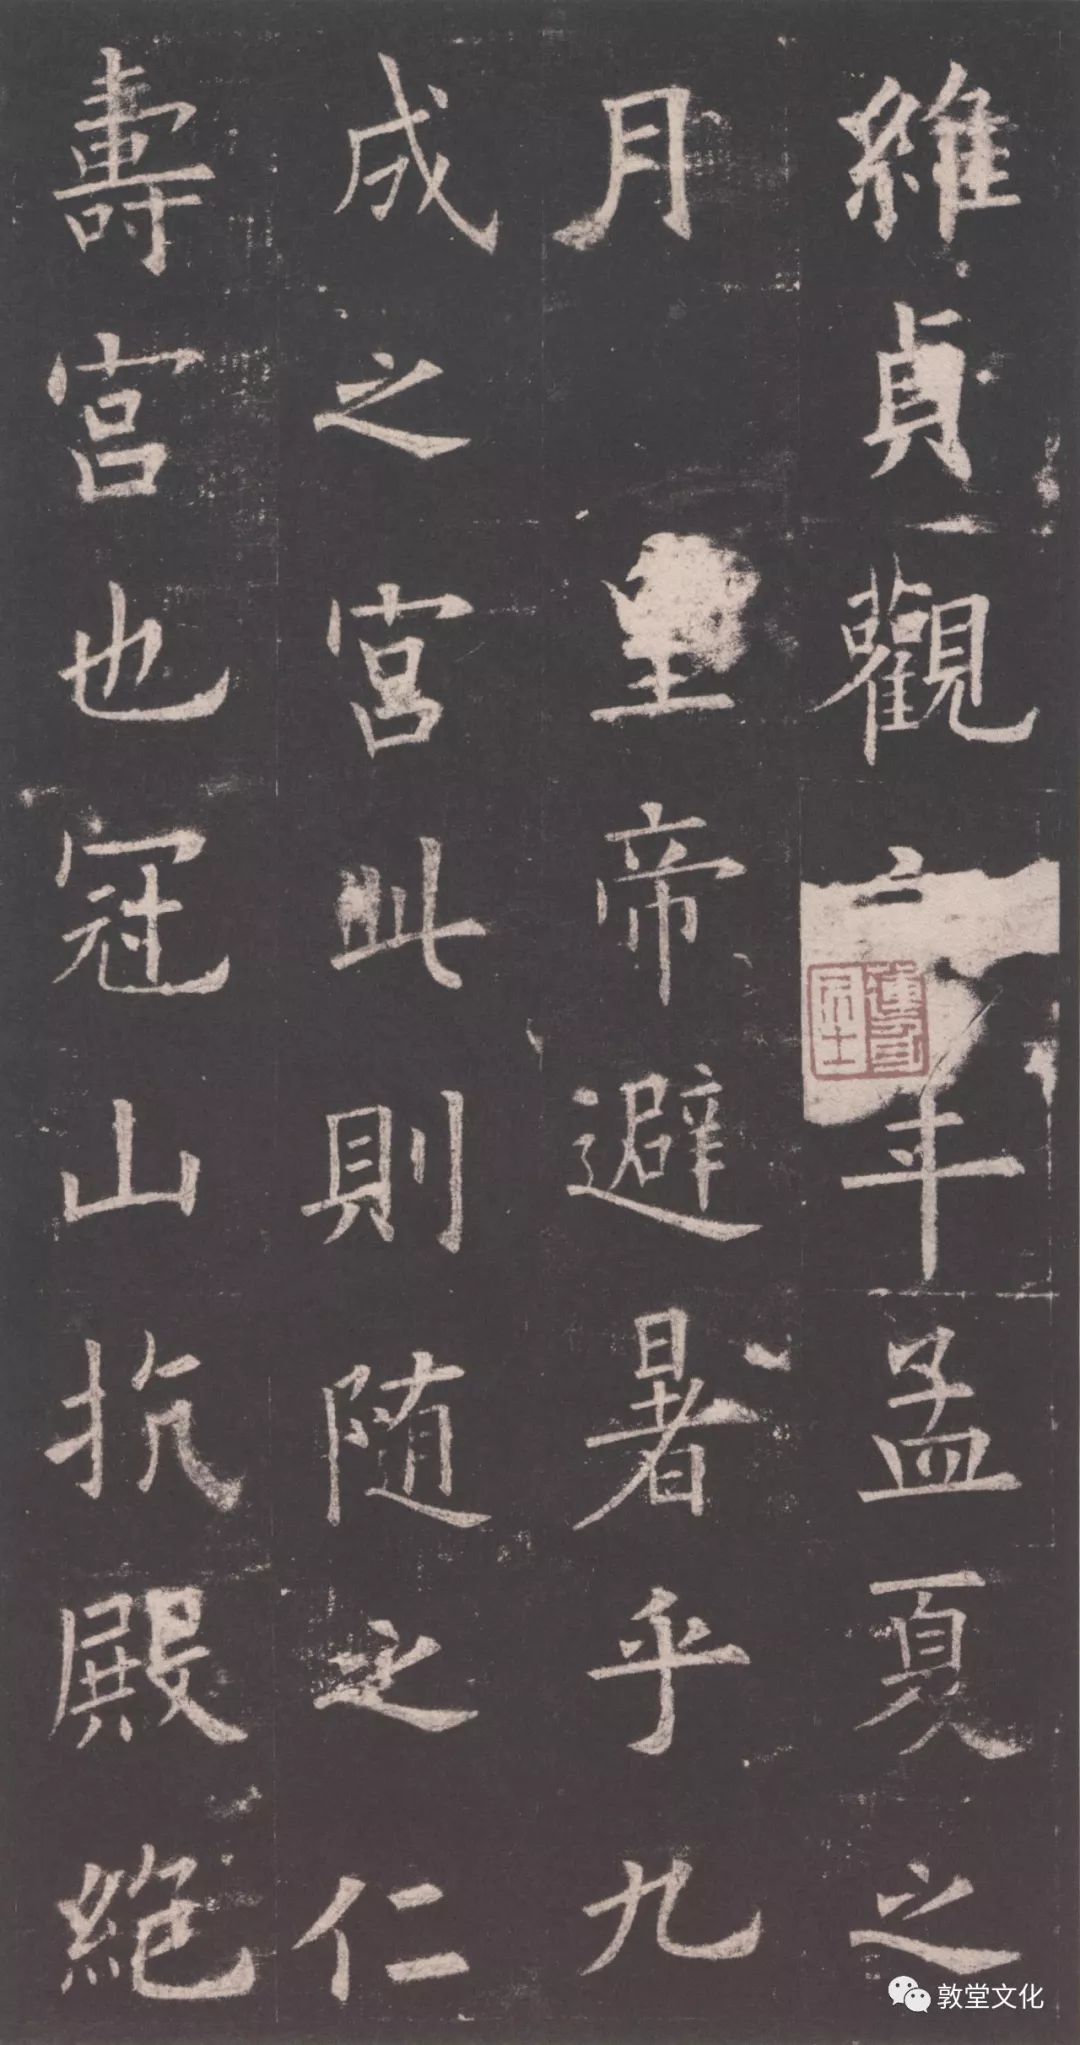 維貞觀六年孟夏之
月 皇帝避暑乎九
成之宮此則随之仁
壽宮也冠山抗殿絕
敦堂文化